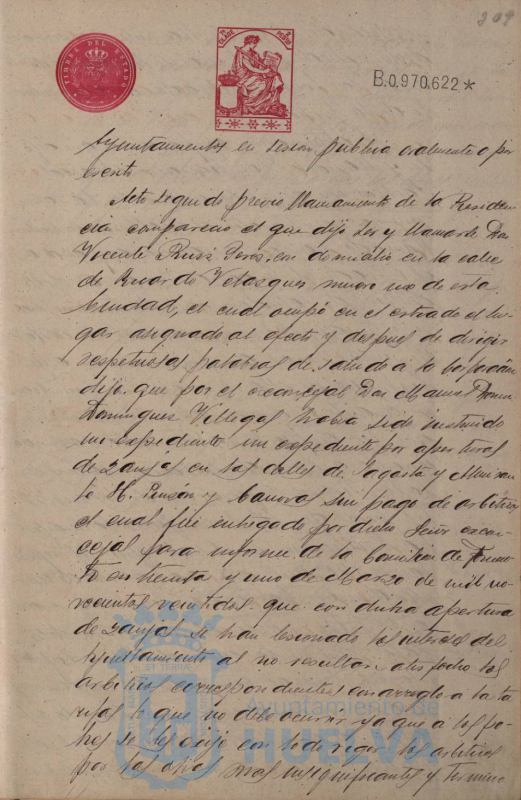 209
TIMBRE DEL ESTADO
B.0,970,622*
Ayuntamientos en sesion publica oralmente o por
escrito
Acto seguido previo llamamiento de la Presiden-
cia comparecio el que dijo ser y llamarse Don
Vicente Ruiz Perez, con domicilio en la calle
de Ricardo Velazquez numero uno de esta
Ciudad, el cual ocupó en el estrado el lu-
gar asignado al efecto y despues de dirigir
respetuosas palabras de saludo a la Corporación
dijo: que por el exconcejal Don Manuel
Dominguez Villegas habia sido instruido
un expediente un expediente por apertura
de zanjas en las calles de Sagasta y
H. Pinzón y Canovas sin pago de arbitrios
el cual fué entregado por dicho Señor excon-
cejal para informe de la Comision de Fomen-
to en treinta y uno de Marzo de mil no-
vecientos veintidos que con dicha apertura
de zanjas se han lesionado los intereses del
Ayuntamiento al no resultar satisfecho los
arbitrios correspondientes con arreglo a la ta-
rifa lo que no debe ocurrir ya que a los po-
bres se les exije con todo rigor los arbitrios
por las obras mas insignificantes y termina
Ayuntamiento de
HUELVA